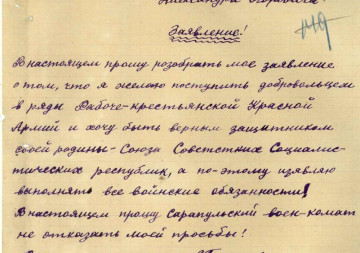 Заявление!
В настоящем прошу розобрать мое заявление
о том, что я желаю поступить добровольцем
в ряды Рабоче-крестьянской Красной
Армий и хочу быть верным защитником
своей родины - Союза Советстких Социалис-
тических республик, а по-этому изявляю
выполнять все воинские обязанности!
В настоящем прошу Сарапульский воен-комат
не отказать моей просьбы!